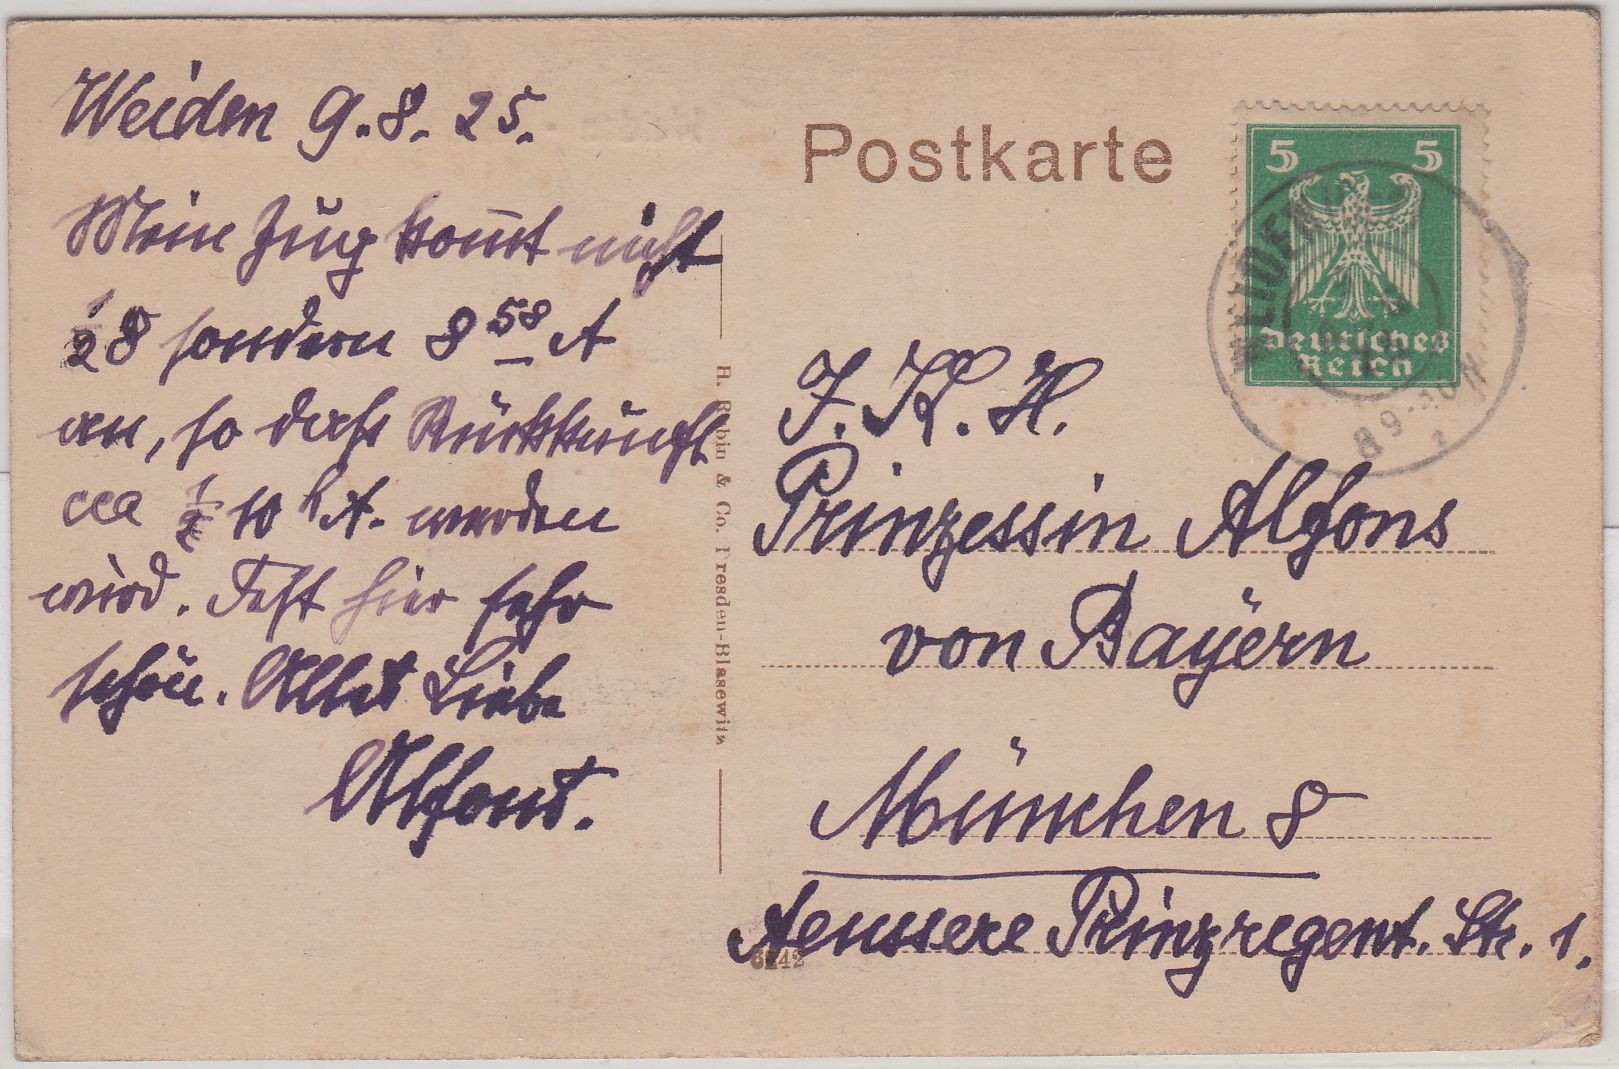 Weiden 9.8.25.
Mein Zug kom̅t nicht
½8 sondern 8 58 A
an, so daß Rückkunft
cca ½ 10 h A. werden
wird. Fest hier sehr
schön. Alles Liebe
Alfons.
Postkarte
5 5
Deutsches
Reich
WEIDEN
8 9-10 N
2
J. K. H.
Prinzessin Alfons
von Bayern
München 8
Aeussere Prinzregent. Str. 1.
R. Rubin & Co. Dresden-Blasewitz
6142